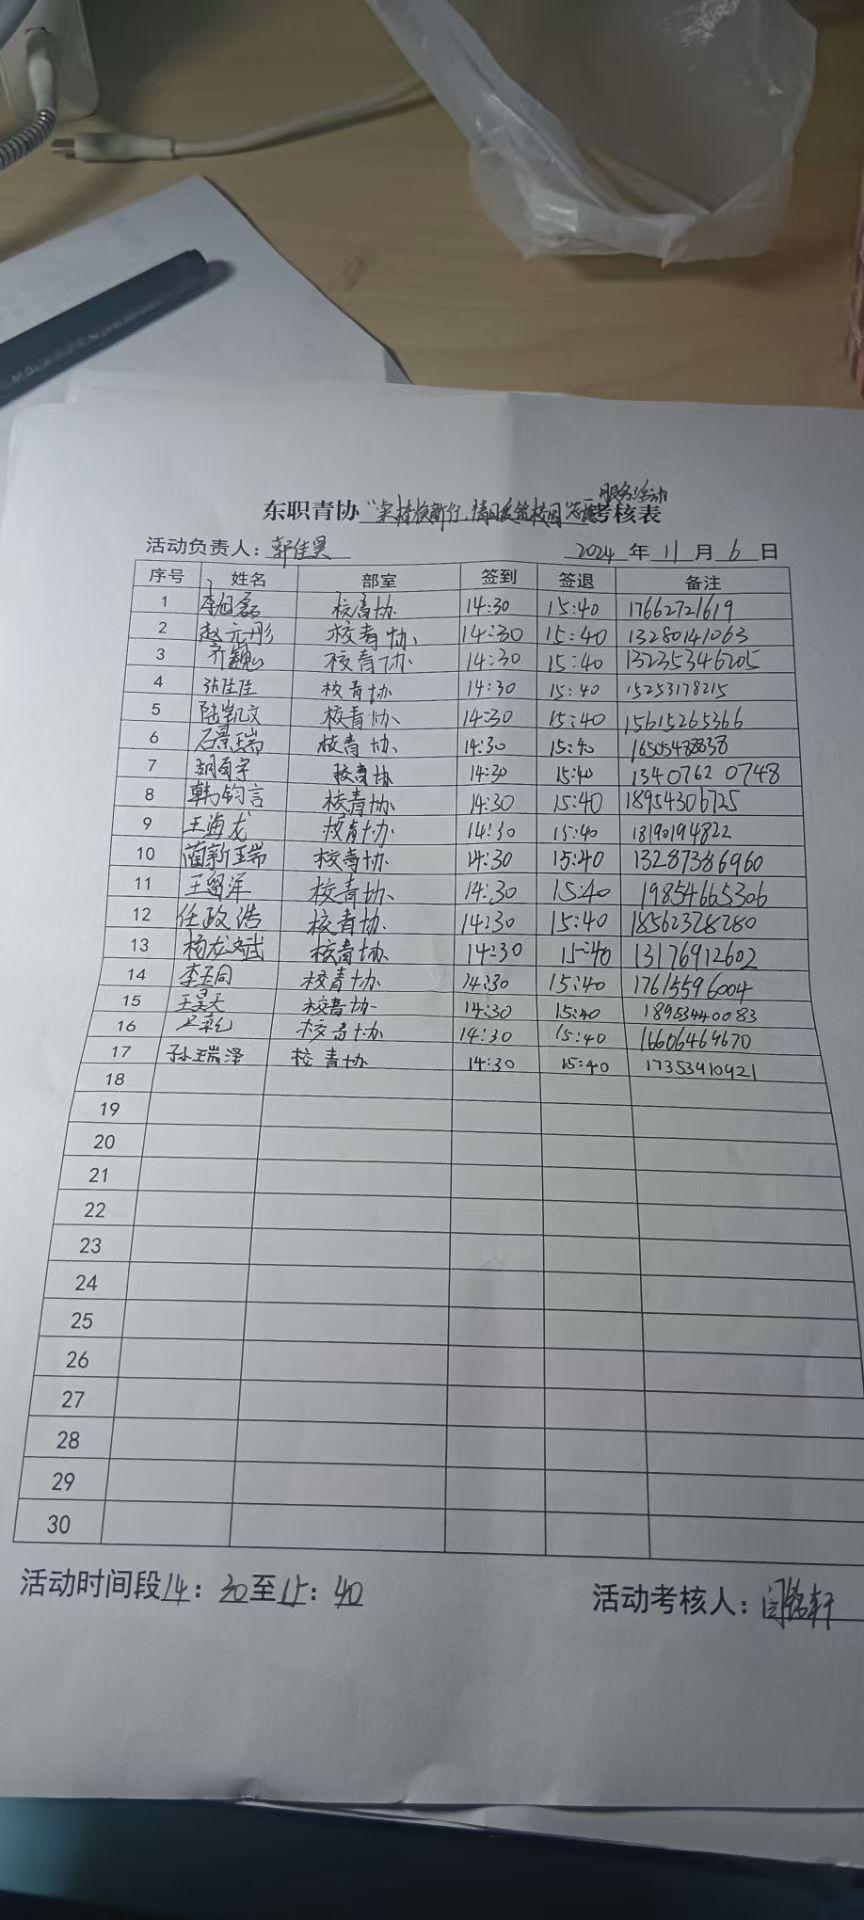 服务活动
东职青协 考核表
活动负责人：郭佳昊 2024 年 11 月 6 日
序号 姓名 部室 签到 签退 备注
1 李旭磊 校青协 14:30 15:40 17662721619
2 赵元彤 校青协 14:30 15:40 13280141063
3 齐巍 校青协 14:30 15:40 13235346205
4 张佳佳 校青协 14:30 15:40 15253178215
5 陆凯文 校青协 14:30 15:40 15615265366
6 石景瑞 校青协 14:30 15:40 16505488838
7 胡 宇 校青协 14:30 15:40 13407620748
8 韩钧言 校青协 14:30 15:40 18954306725
9 王海龙 校青协 14:30 15:40 18190194822
10 蔺新瑞 校青协 14:30 15:40 13287386960
11 王留洋 校青协 14:30 15:40 19854665306
12 任政浩 校青协 14:30 15:40 18562328280
13 杨龙斌 校青协 14:30 15:40 13176912602
14 李玉同 校青协 14:30 15:40 17615596004
15 王昊天 校青协 14:30 15:40 18953440083
16 校青协 14:30 15:40 16606464670
17 孙瑞泽 校青协 14:30 15:40 17353910921
18
19
20
21
22
23
24
25
26
27
28
29
30
活动时间段14：30至15：40 活动考核人：闫铭轩